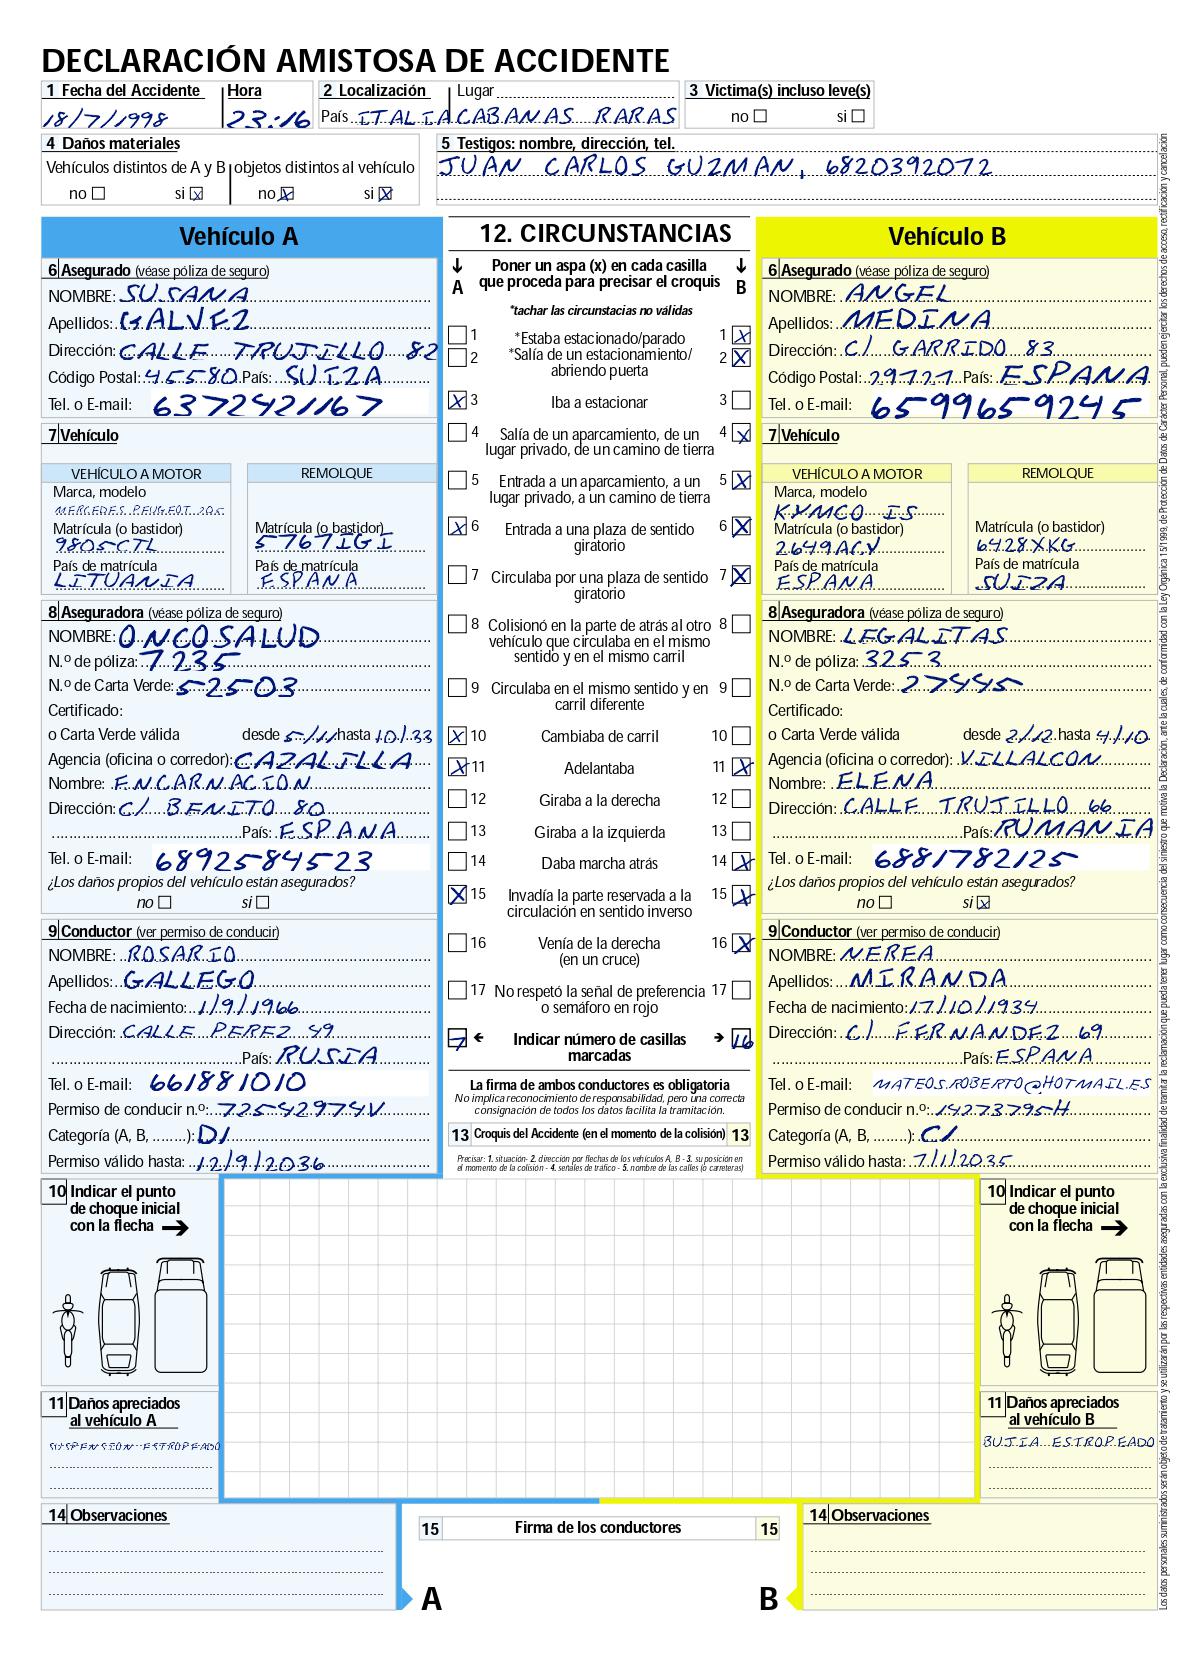 DECLARACIÓN AMISTOSA DE ACCIDENTE
1 Fecha del Accidente Hora
18/7/1998 23:16
2 Localización Lugar
País ITALIA CABANAS RARAS
3 Victima(s) incluso leve(s)
no si
4 Daños materiales
Vehículos distintos de A y B objetos distintos al vehículo
no si X no X si X
5 Testigos: nombre, dirección, tel.
JUAN CARLOS GUZMAN, 6820392072
Vehículo A
6 Asegurado (véase póliza de seguro)
NOMBRE: SUSANA
Apellidos: GALVEZ
Dirección: CALLE TRUJILLO 82
Código Postal: 45580 País: SUIZA
Tel. o E-mail: 6372421167
7 Vehículo
VEHÍCULO A MOTOR REMOLQUE
Marca, modelo
MERCEDES PEUGEOT 205
Matrícula (o bastidor) Matrícula (o bastidor)
9805CTL 5767IGI
País de matrícula País de matrícula
LITUANIA ESPANA
8 Aseguradora (véase póliza de seguro)
NOMBRE: ONCOSALUD
N.º de póliza: 7235
N.º de Carta Verde: 52503
Certificado:
o Carta Verde válida desde 5/11 hasta 10/33
Agencia (oficina o corredor): CAZALILLA
Nombre: ENCARNACION
Dirección: C/ BENITO 80
País: ESPANA
Tel. o E-mail: 6892584523
¿Los daños propios del vehículo están asegurados?
no si
9 Conductor (ver permiso de conducir)
NOMBRE: ROSARIO
Apellidos: GALLEGO
Fecha de nacimiento: 1/9/1966
Dirección: CALLE PEREZ 49
País: RUSIA
Tel. o E-mail: 661881010
Permiso de conducir n.º: 72542974V
Categoría (A, B, ........): D1
Permiso válido hasta: 12/9/2036
12. CIRCUNSTANCIAS
A Poner un aspa (x) en cada casilla B
que proceda para precisar el croquis
*tachar las circunstacias no válidas
1 *Estaba estacionado/parado 1 X
2 *Salía de un estacionamiento/ 2 X
abriendo puerta
X 3 Iba a estacionar 3
4 Salía de un aparcamiento, de un 4 X
lugar privado, de un camino de tierra
5 Entrada a un aparcamiento, a un 5 X
lugar privado, a un camino de tierra
X 6 Entrada a una plaza de sentido 6 X
giratorio
7 Circulaba por una plaza de sentido 7 X
giratorio
8 Colisionó en la parte de atrás al otro 8
vehículo que circulaba en el mismo
sentido y en el mismo carril
9 Circulaba en el mismo sentido y en 9
carril diferente
X 10 Cambiaba de carril 10
X 11 Adelantaba 11 X
12 Giraba a la derecha 12
13 Giraba a la izquierda 13
14 Daba marcha atrás 14 X
X 15 Invadía la parte reservada a la 15 X
circulación en sentido inverso
16 Venía de la derecha 16 X
(en un cruce)
17 No respetó la señal de preferencia 17
o semáforo en rojo
7 Indicar número de casillas 16
marcadas
La firma de ambos conductores es obligatoria
No implica reconocimiento de responsabilidad, pero una correcta
consignación de todos los datos facilita la tramitación.
13 Croquis del Accidente (en el momento de la colisión) 13
Precisar: 1. situación- 2. dirección por flechas de los vehículos A, B - 3. su posición en
el momento de la colisión - 4. señales de tráfico - 5. nombre de las calles (o carreteras)
Vehículo B
6 Asegurado (véase póliza de seguro)
NOMBRE: ANGEL
Apellidos: MEDINA
Dirección: C/ GARRIDO 83
Código Postal: 29727 País: ESPANA
Tel. o E-mail: 65996659245
7 Vehículo
VEHÍCULO A MOTOR REMOLQUE
Marca, modelo
KYMCO IS
Matrícula (o bastidor) Matrícula (o bastidor)
2649ACV 6428XKG
País de matrícula País de matrícula
ESPANA SUIZA
8 Aseguradora (véase póliza de seguro)
NOMBRE: LEGALITAS
N.º de póliza: 3253
N.º de Carta Verde: 27445
Certificado:
o Carta Verde válida desde 2/12 hasta 4/10
Agencia (oficina o corredor): VILLALCON
Nombre: ELENA
Dirección: CALLE TRUJILLO 66
País: RUMANIA
Tel. o E-mail: 6881782125
¿Los daños propios del vehículo están asegurados?
no si X
9 Conductor (ver permiso de conducir)
NOMBRE: NEREA
Apellidos: MIRANDA
Fecha de nacimiento: 17/10/1934
Dirección: C/ FERNANDEZ 69
País: ESPANA
Tel. o E-mail: MATEOS.ROBERTO@HOTMAIL.ES
Permiso de conducir n.º: 14273795H
Categoría (A, B, ........): C1
Permiso válido hasta: 7/1/2035
10 Indicar el punto
de choque inicial
con la flecha
11 Daños apreciados
al vehículo A
SUSPENSION ESTROPEADO
10 Indicar el punto
de choque inicial
con la flecha
11 Daños apreciados
al vehículo B
BUJIA ESTROPEADO
14 Observaciones
15 Firma de los conductores 15
A B
14 Observaciones
Los datos personales suministrados serán objeto de tratamiento y se utilizarán por las respectivas entidades aseguradas con la exclusiva finalidad de tramitar la reclamación que pueda tener lugar como consecuencia del siniestro que motiva la Declaración, ante la cuales, de conformidad con la Ley Orgánica 15/1999, de Protección de Datos de Carácter Personal, pueden ejercitar los derechos de acceso, rectificación y cancelación